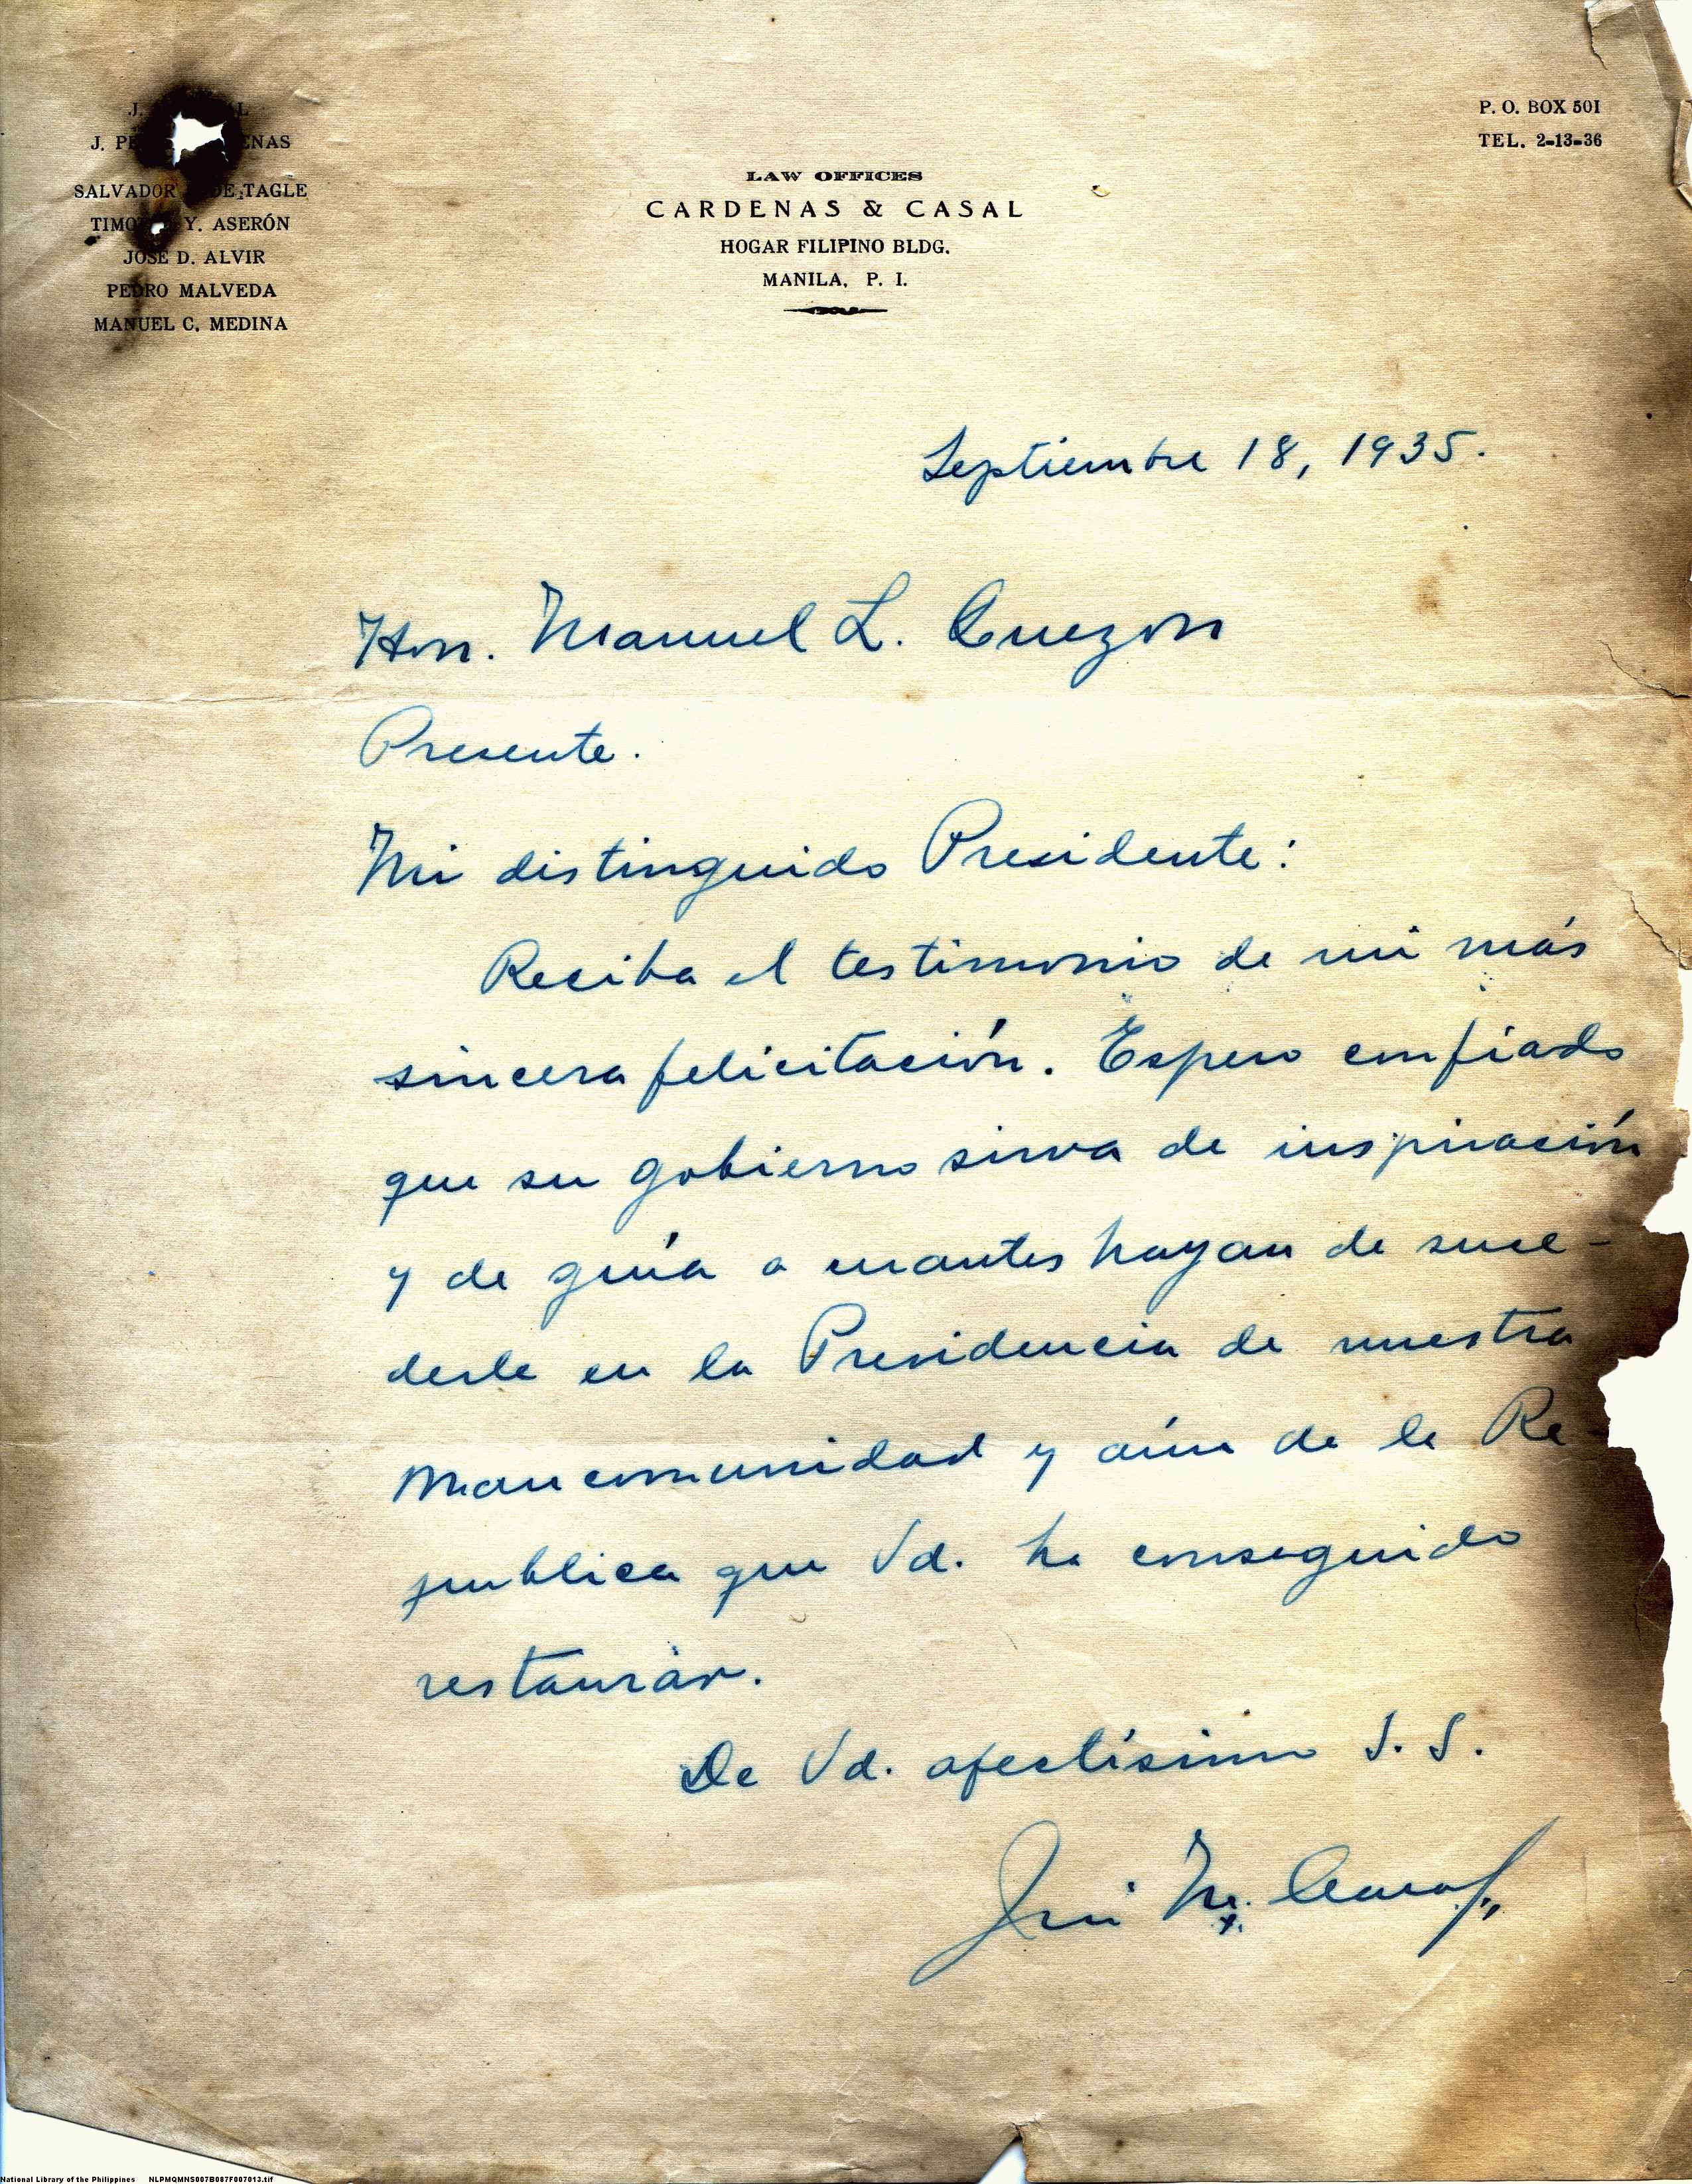 J. L
J. PE ENAS
SALVADOR DE TAGLE
TIMO Y. ASERÓN
JOSE D. ALVIR
PEDRO MALVEDA
MANUEL C. MEDINA
P. O. BOX 501
TEL. 2-13-36
LAW OFFICES
CARDENAS & CASAL
HOGAR FILIPINO BLDG.
MANILA, P. I.
Septiembre 18, 1935.
Hon. Manuel L. Quezon
Presente.
Mi distinguido Presidente:
Reciba el testimonio de mi más
sincera felicitación. Espero confiado
que su gobierno sirva de inspiración
y de guía a cuantos hayan de suce-
derle en la Presidencia de nuestra
Mancomunidad y aún de la Re-
publica que Vd. ha conseguido
restaurar.
De Vd. afectísimo S. S.
National Library of the Philippines NLPMQMNS007B087F007013.tif